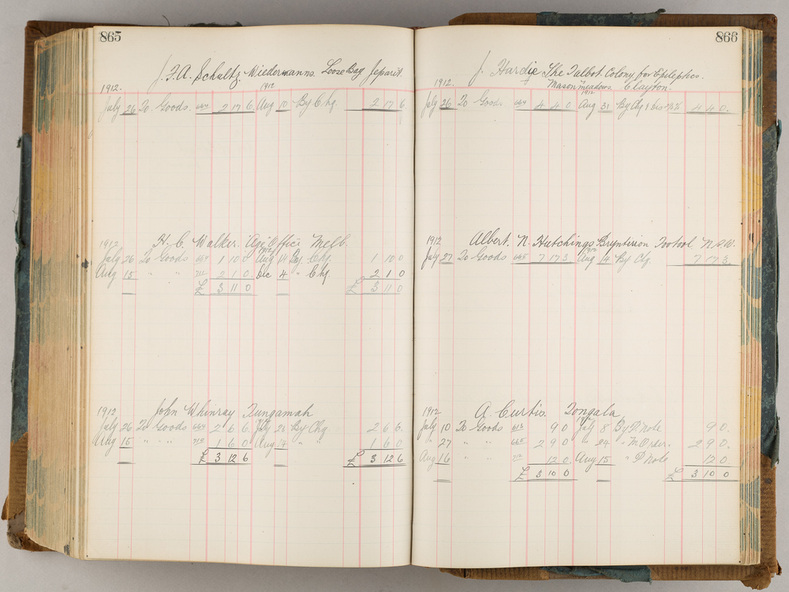 865
J. F. A. Schultz Niedermanns. Loose Bag Jeparit.
1912. 1912
July 26 To Goods 2 17 6 Aug 10 By Chq 2 17 6
1912 H. C. Walker. Agri Office Melb.
July 26 To Goods 1 10 0 Aug By Chq. 1 10 0
Aug 15 " " 2 1 0 Dec 4 " Chq 2 1 0
£ 3 11 0 £ 3 11 0
1912 John Whinray Tungamah
July 26 To Goods 2 6 6 July 28 By Chq 2 6 6
Aug 15 " " 1 6 0 Aug 19 " 1 6 0
£ 3 12 6 £ 3 12 6
866
J. Hardie The Talbot Colony for Epileptics.
1912. Mason meadows Clayton.
1912
July 26 To Goods 4 4 0 Aug 31 By Chq 4 4 0
1912 Albert. N. Hutchings Bryntirion Tootool N.S.W.
July 27 To Goods 7 17 3 Aug 14 By Chq. 7 17 3
1912 A Curtis Tongala
July 10 To Goods 9 0 July 8 By P. Note 9 0
" 27 " " 2 9 0 " 24 " M. Order. 2 9 0
Aug 16 " " 12 0 Aug 15 " P Note 12 0
£ 3 10 0 £ 3 10 0